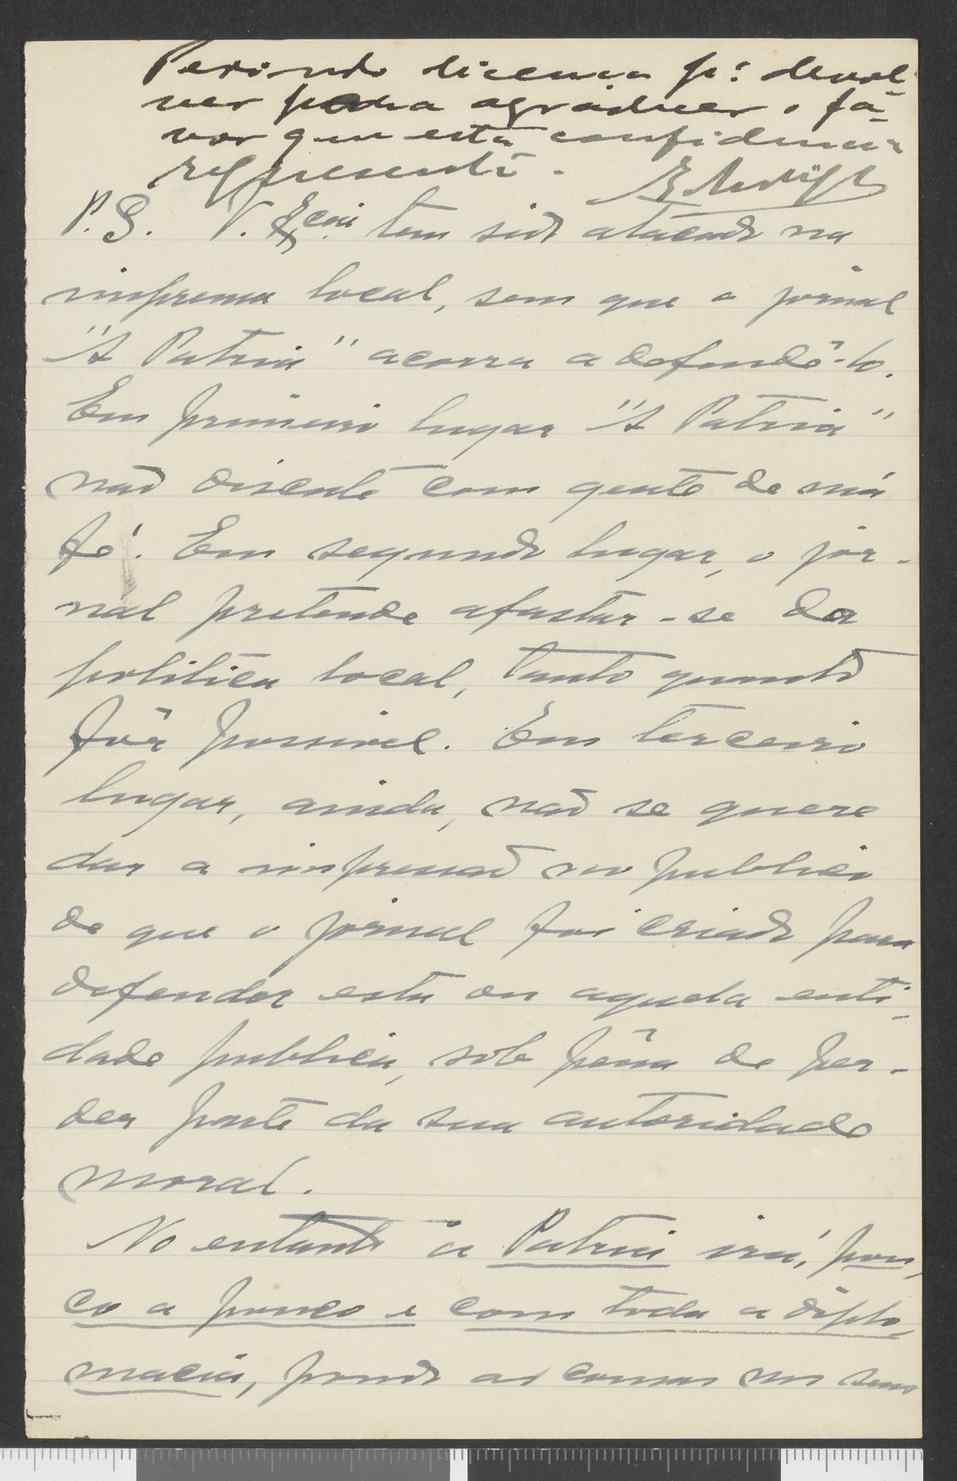 Pedindo licença pª devol-
ver para agradecer o fa-
vor que esta confidencia
representa.
P.S. V. Excia tem sido atacado na
imprensa local, sem que o jornal
"A Patria" acorra a defendê-lo.
Em primeiro lugar "A Patria"
não discute com gente de má
fé. Em segundo lugar, o jor-
nal pretende afastar-se da
politica local, tanto quanto
fôr possivel. Em terceiro
lugar, ainda, não se quere
dar a impressão no publico
de que o jornal foi criado para
defender esta ou aquela enti-
dade publica, sob pêna de per-
der parte da sua autoridade
moral.
No entanto a Patria irá, pou-
co a pouco e com toda a diplo-
macia, pondo as cousas no seu